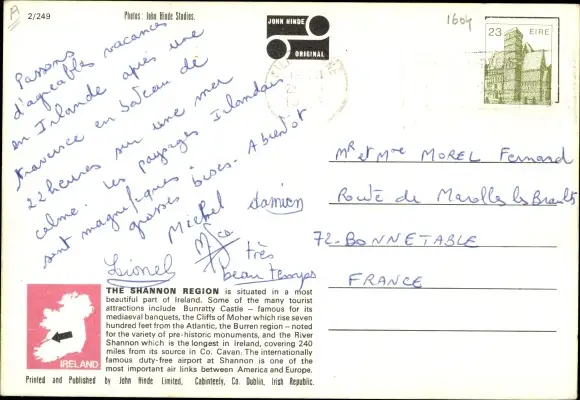 2/249
Photos: John Hinde Studios.
JOHN HINDE
ORIGINAL
1604
23 EIRE
Passons
d'agréables vacances
en Irlande après une
traversée en bateau de
22 heures sur une mer
calme. Les paysages Irlandais
sont magnifiques.
grosses bises. A bientôt
Michel Damien
Lionel
très
beau temps
MR et Mme MOREL Fernand
Route de Marolles les Braults
72-BONNETABLE
FRANCE
THE SHANNON REGION is situated in a most
beautiful part of Ireland. Some of the many tourist
attractions include Bunratty Castle – famous for its
mediaeval banquets, the Cliffs of Moher which rise seven
hundred feet from the Atlantic, the Burren region – noted
for the variety of pre-historic monuments, and the River
Shannon which is the longest in Ireland, covering 240
miles from its source in Co. Cavan. The internationally
famous duty-free airport at Shannon is one of the
most important air links between America and Europe.
IRELAND
Printed and Published by John Hinde Limited, Cabinteely, Co. Dublin, Irish Republic.